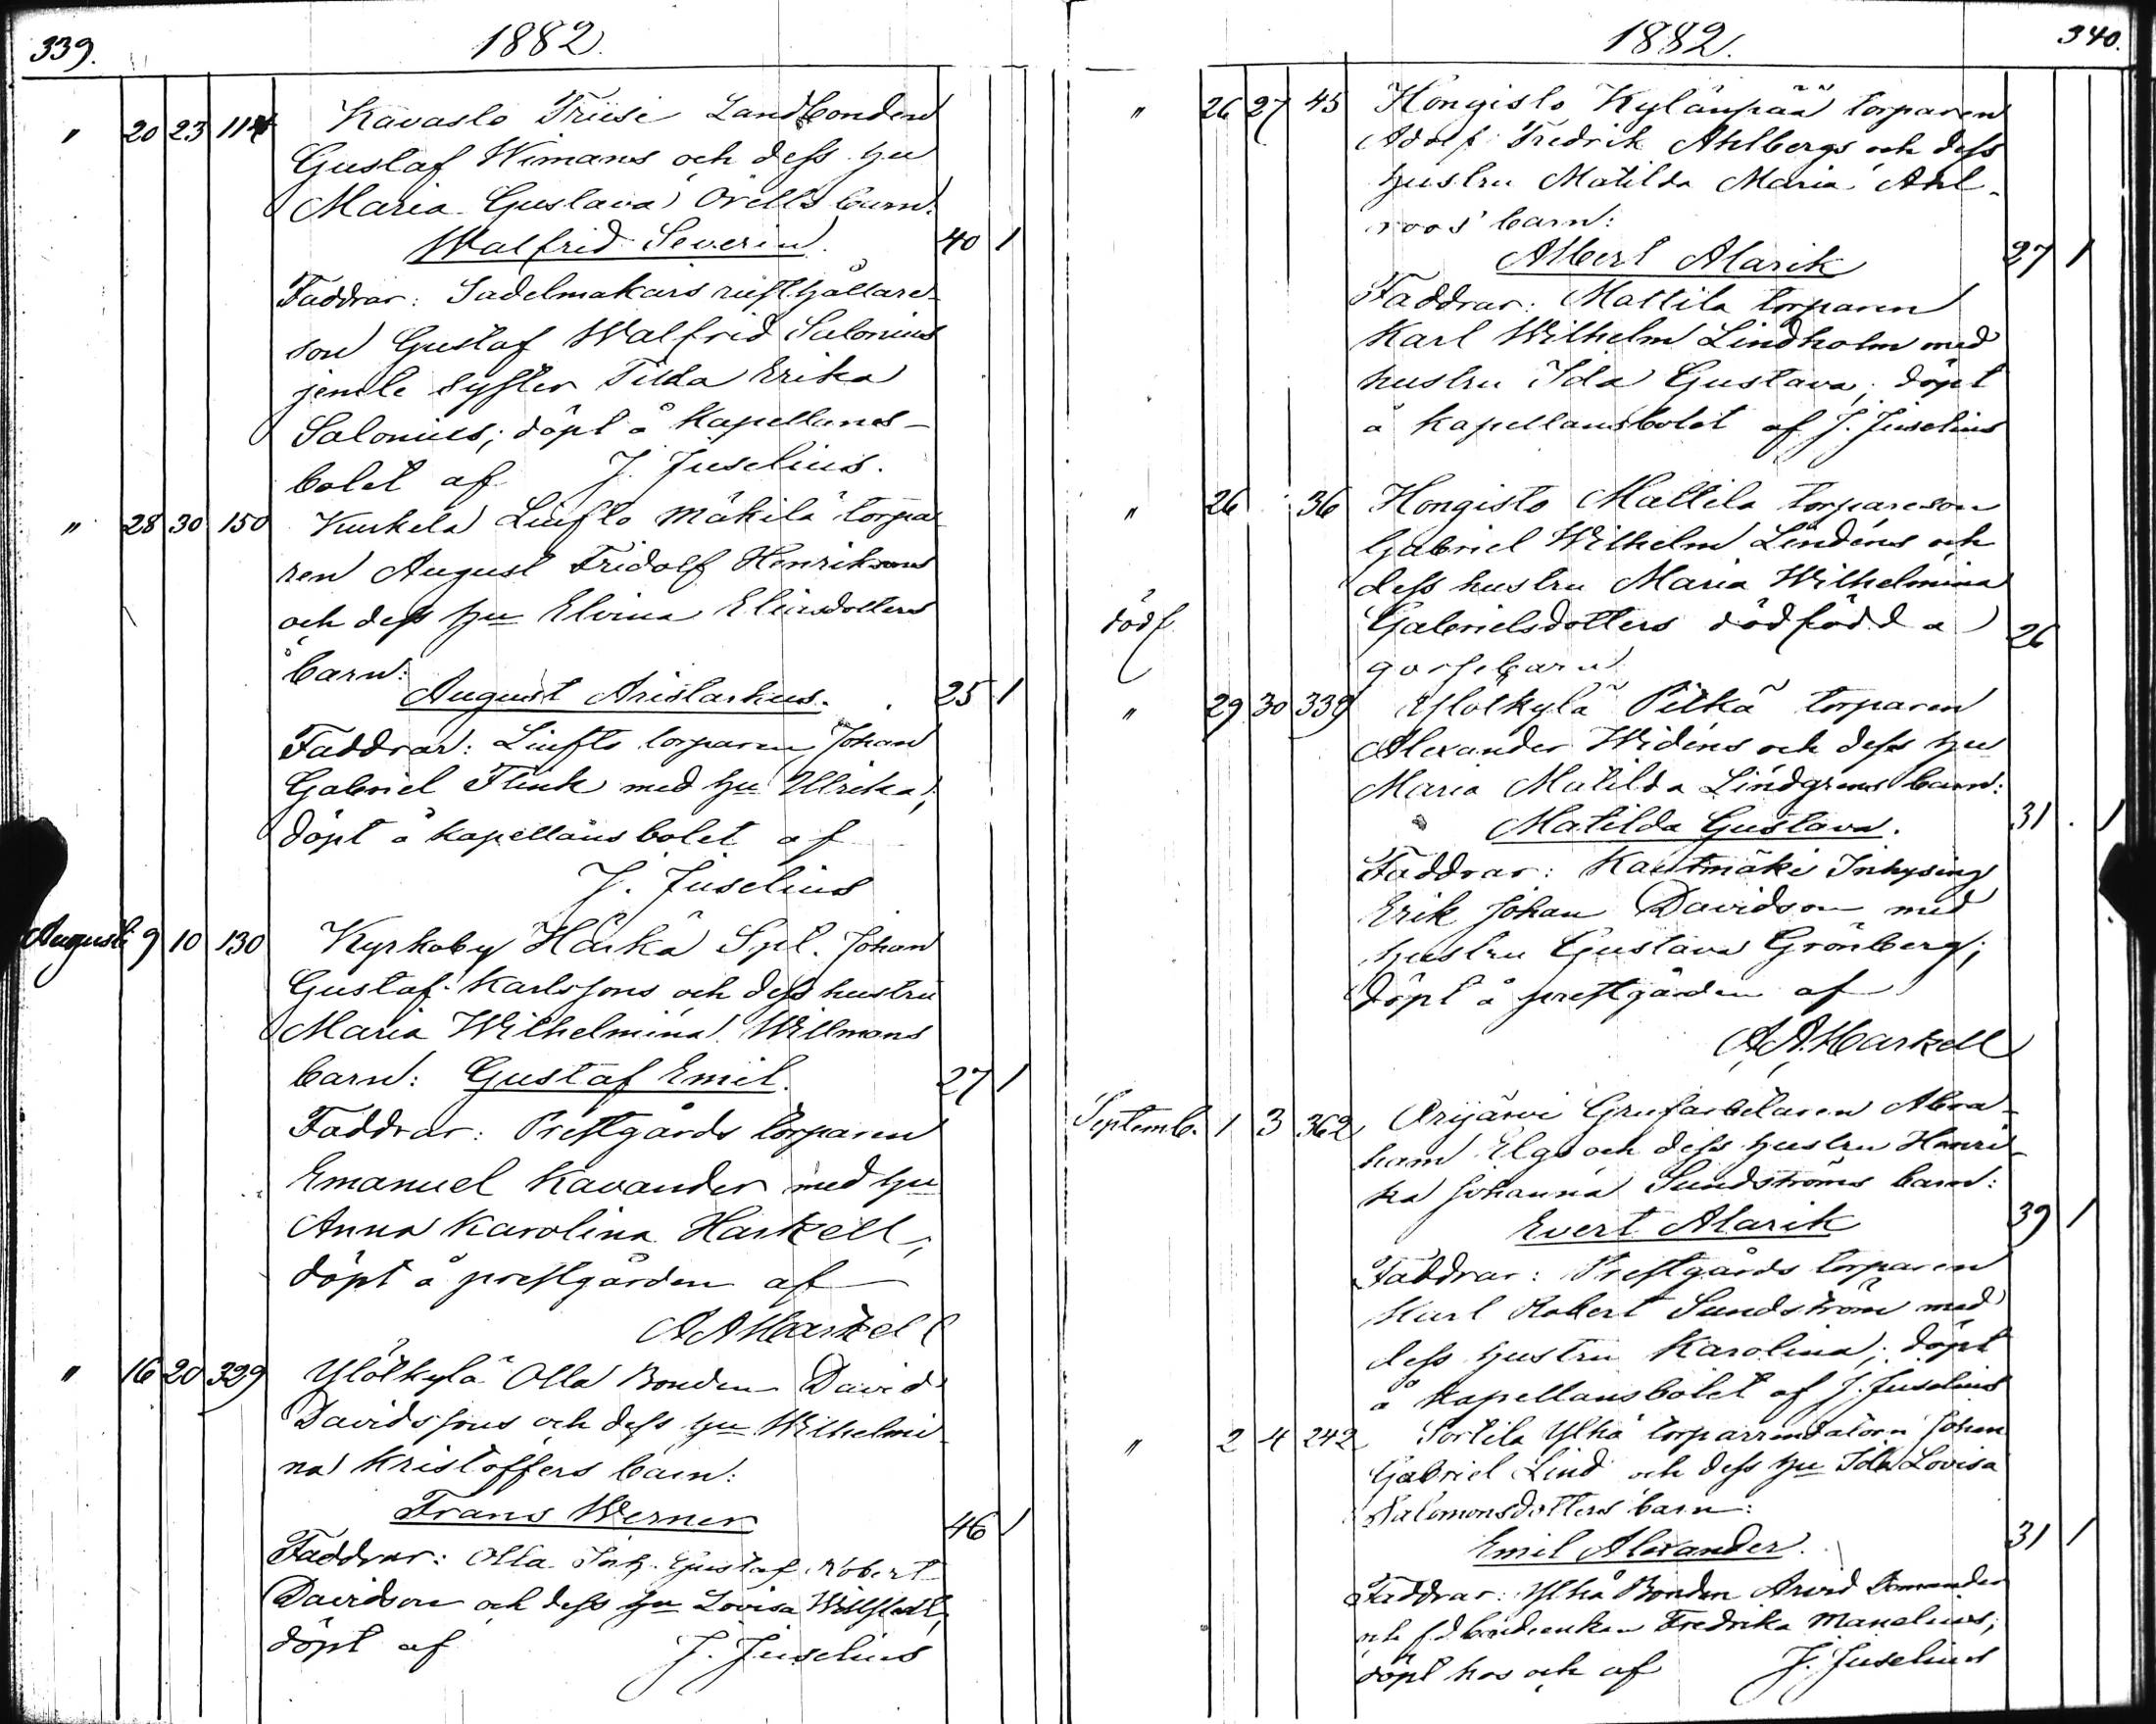 339.
1882.
" 20 23 114 Kavasto Triisi Landbonden
Gustaf Wimans och dess hu
Maria Gustava Örells barn:
Walfrid Severin. 40 1
Faddrar: Sadelmakars rusthållare-
son Gustaf Walfrid Salonius
jemte syster Tilda Erika
Salonius; döpt å Kapellans-
bolet af J. Juselius.
" 28 30 150 Kurkela Liufto Mäkilä torpa-
ren August Fridolf Henriksons
och dess hu Elvina Eliasdotters
barn:
August Aristarkus. 25 1
Faddrar: Liufto torparen Johan
Gabriel Flink med hu Ulrika;
döpt å kapellansbolet af
J. Juselius
Augusti 9 10 130 Kyrkoby Härkä Spl. Johan
Gustaf Karlssons och dess hustru
Maria Wilhelmina Willmans
barn: Gustaf Emil. 27 1
Faddrar: Prestgårds torparen
Emanuel Kavander med hu
Anna Karolina Harkell;
döpt å prestgården af
A A Harkell
" 16 20 329 Yläkylä Olla Bonden David
Davidssons och dess hu Wilhelmi-
na Kristoffers barn:
Frans Werner 46 1
Faddrar: Olla Inh. Gustaf Robert
Davidson och dess hu Lovisa
döpt af J. Juselius
1882.
340.
" 26 27 45 Hongisto Kylänpää torparen
Adolf Fredrik Ahlbergs och dess
hustru Matilda Maria Ahl-
roos' barn:
Albert Alarik 27 1
Faddrar: Mattila torparen
Karl Wilhelm Lindholm med
hustru Ida Gustava; döpt
å kapellansbolet af J. Juselius
" 26 36 Hongisto Mattila torpareson
Gabriel Wilhelm Lindéns och
dess hustru Maria Wilhelmina
dödf. Gabrielsdotters dödfödda 26
gossebarn
" 29 30 339 Pitkä torparen
Alexander Widéns och dess hu
Maria Matilda Lindgrens barn:
Matilda Gustava. 31 . 1
Faddrar: Kautmäki Inhysing
Erik Johan Davidson med
hustru Gustava Grönberg;
döpt å prestgården af
A A Harkell
Septemb. 1 3 362 Orijärvi Grufarbetaren Abra-
ham Elgs och dess hustru Henri-
ka Johanna Sundströms barn:
Evert Alarik 39 1
Faddrar: Prestgårds torparen
Karl Robert Sundström med
dess hustru Karolina; döpt
å kapellansbolet af J. Juselius
" 2 4 242 Sortila Ylhä torparrendatorn Johan
Gabriel Lind och dess hu Ida Lovisa
Salomonsdotters barn:
Emil Alexander. 31 1
Faddrar: Ylhä Bonden Arvid
och f.d. Fredrika Manelius;
döpt hos och af J. Juselius